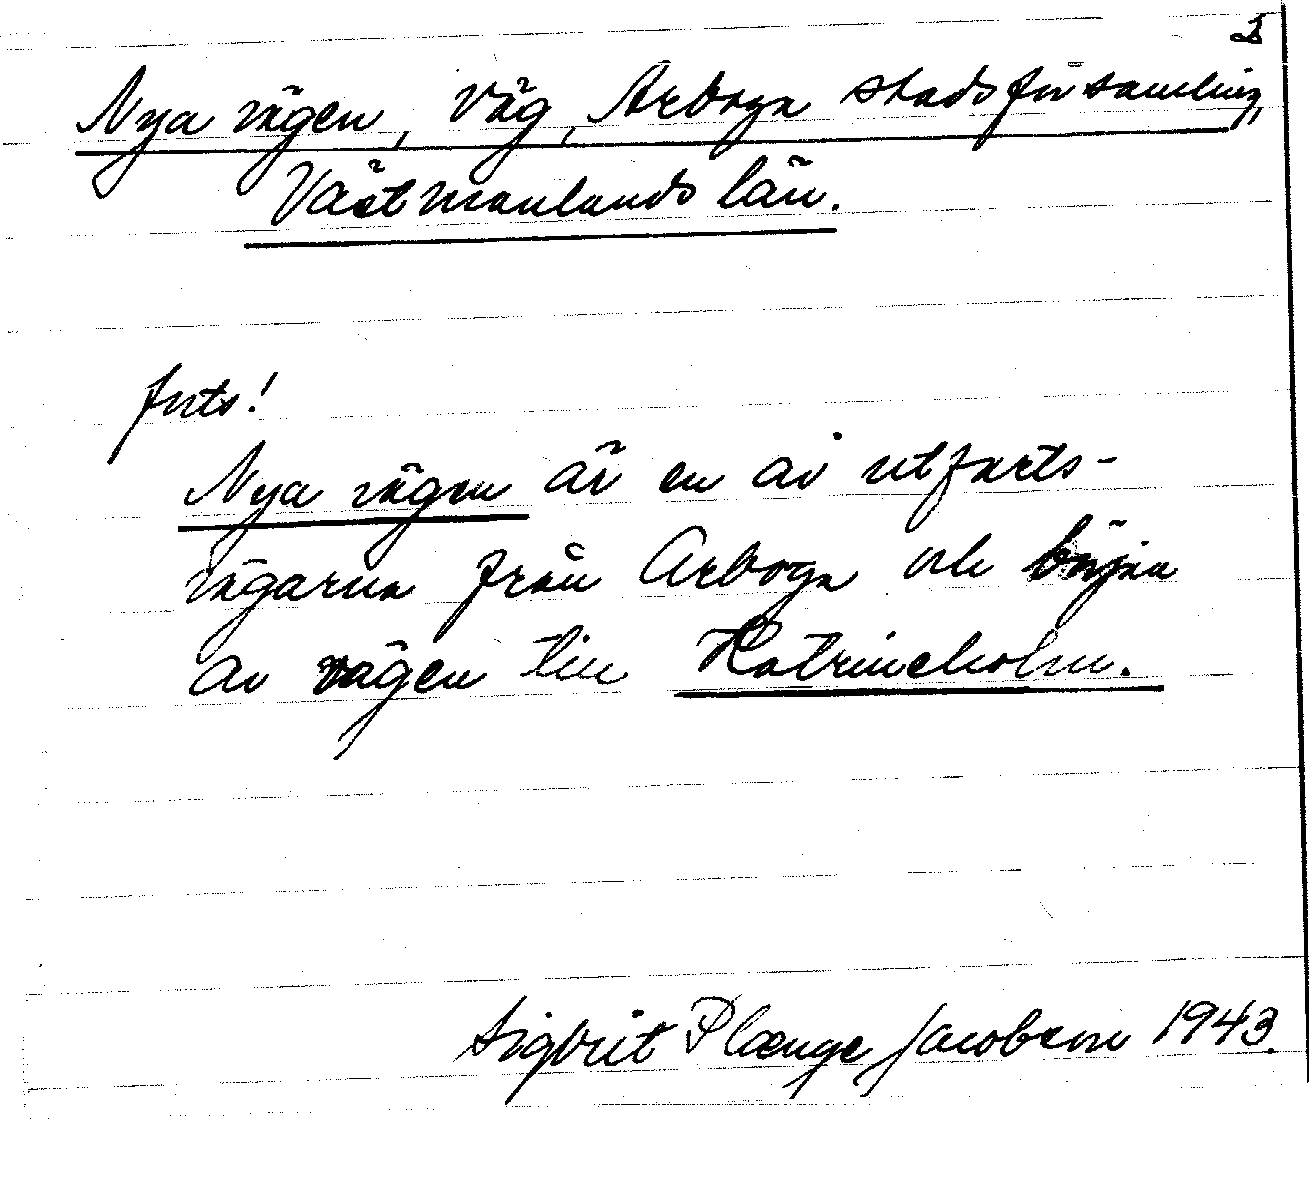 2
Nya vägen, väg, Arboga stadsförsamling,
Västmanlands län.
forts!
Nya vägen är en av utfarts-
vägarna från Arboga och början
av vägen till Katrineholm.
Sigbrit Plænge Jacobson 1943.